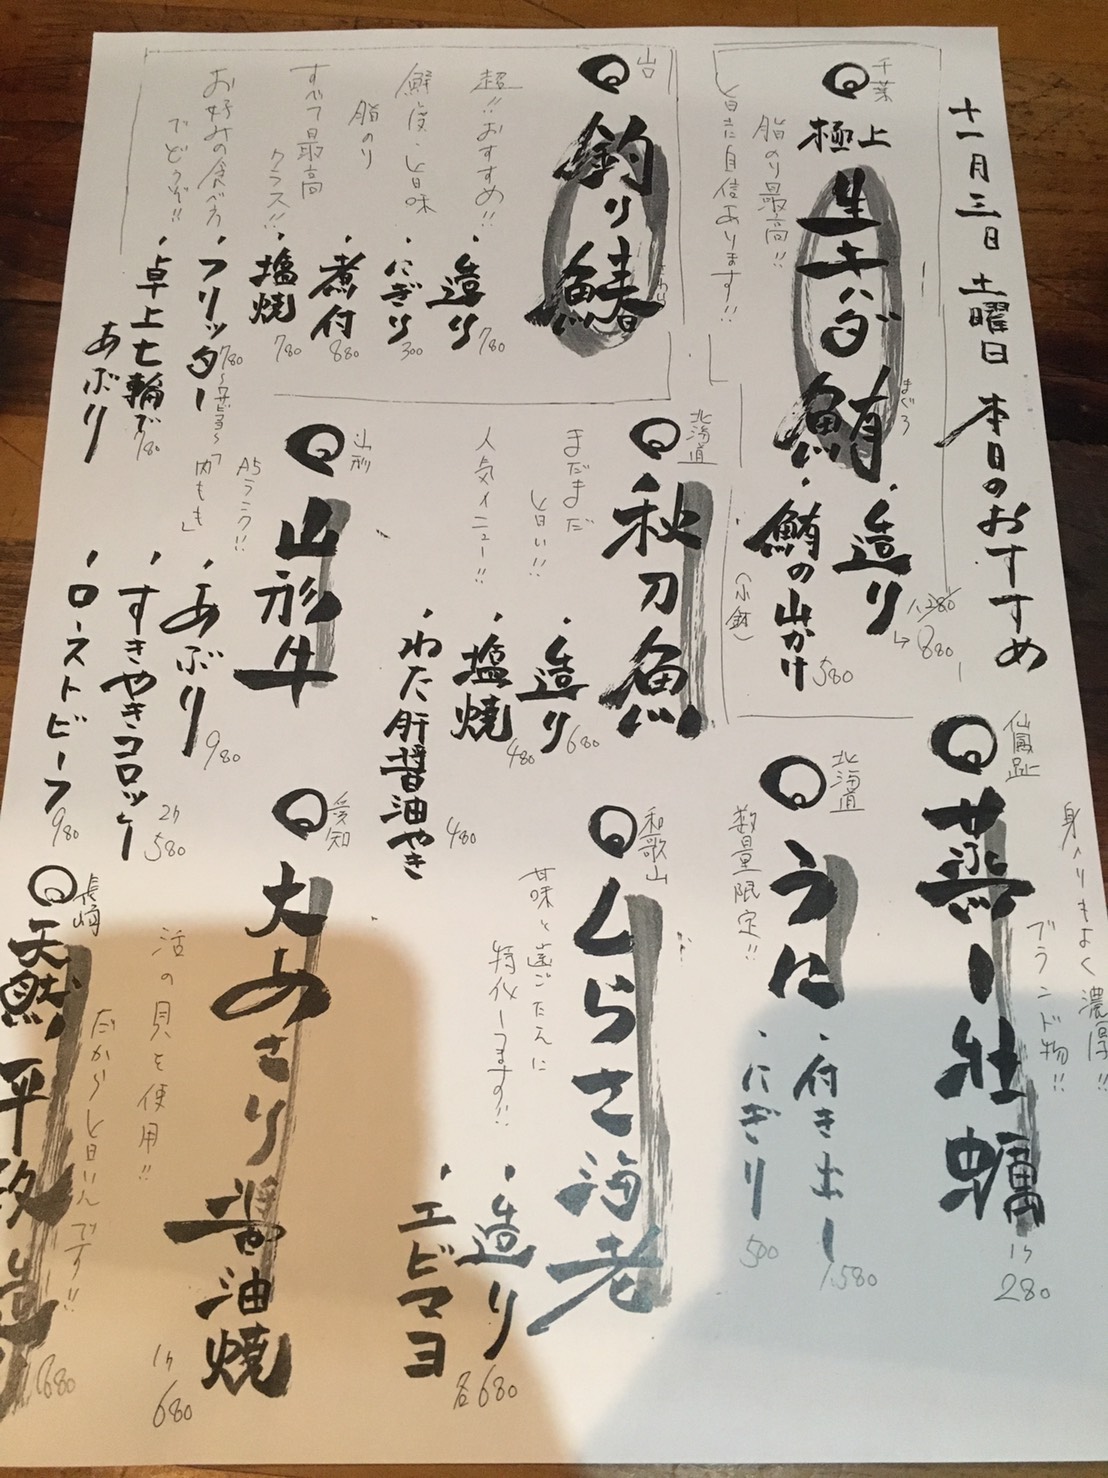 十一月三日 土曜日 本日のおすすめ
千葉
極上
生キハダ鮪
まぐろ
脂のり最高!!
旨さに自信あります!!
・造り
1,280
↳880
・鮪の山かけ
(小鉢)
580
山口
釣り鰆
さわら
超!!おすすめ!!
鮮度・旨味
脂のり
すべて最高
クラス!!
お好みの食べ方
でどうぞ!!
・造り 780
・にぎり 300
・煮付 880
・塩焼 780
・フリッター 780
・卓上七輪で
あぶり
780
北海道
秋刀魚
まだまだ
旨い!!
人気メニュー!!
・造り 680
・塩焼 480
・わた肝醤油やき 480
山形
山形牛
A5ランク!!
「内もも」
・あぶり 980
・すきやきコロッケ
2ケ
580
・ローストビーフ 980
仙鳳趾
蒸し牡蠣
身入りもよく濃厚!!
ブランド物!!
1ケ
280
北海道
うに
数量限定!!
・付き出し 1,580
・にぎり 500
和歌山
しらさ海老
甘味と歯ごたえに
特化してます!!
・造り
・エビマヨ
各680
愛知
大あさり醤油焼
活の貝を使用!!
1ケ
680
長崎
天然平政造り
だから旨いんです!!